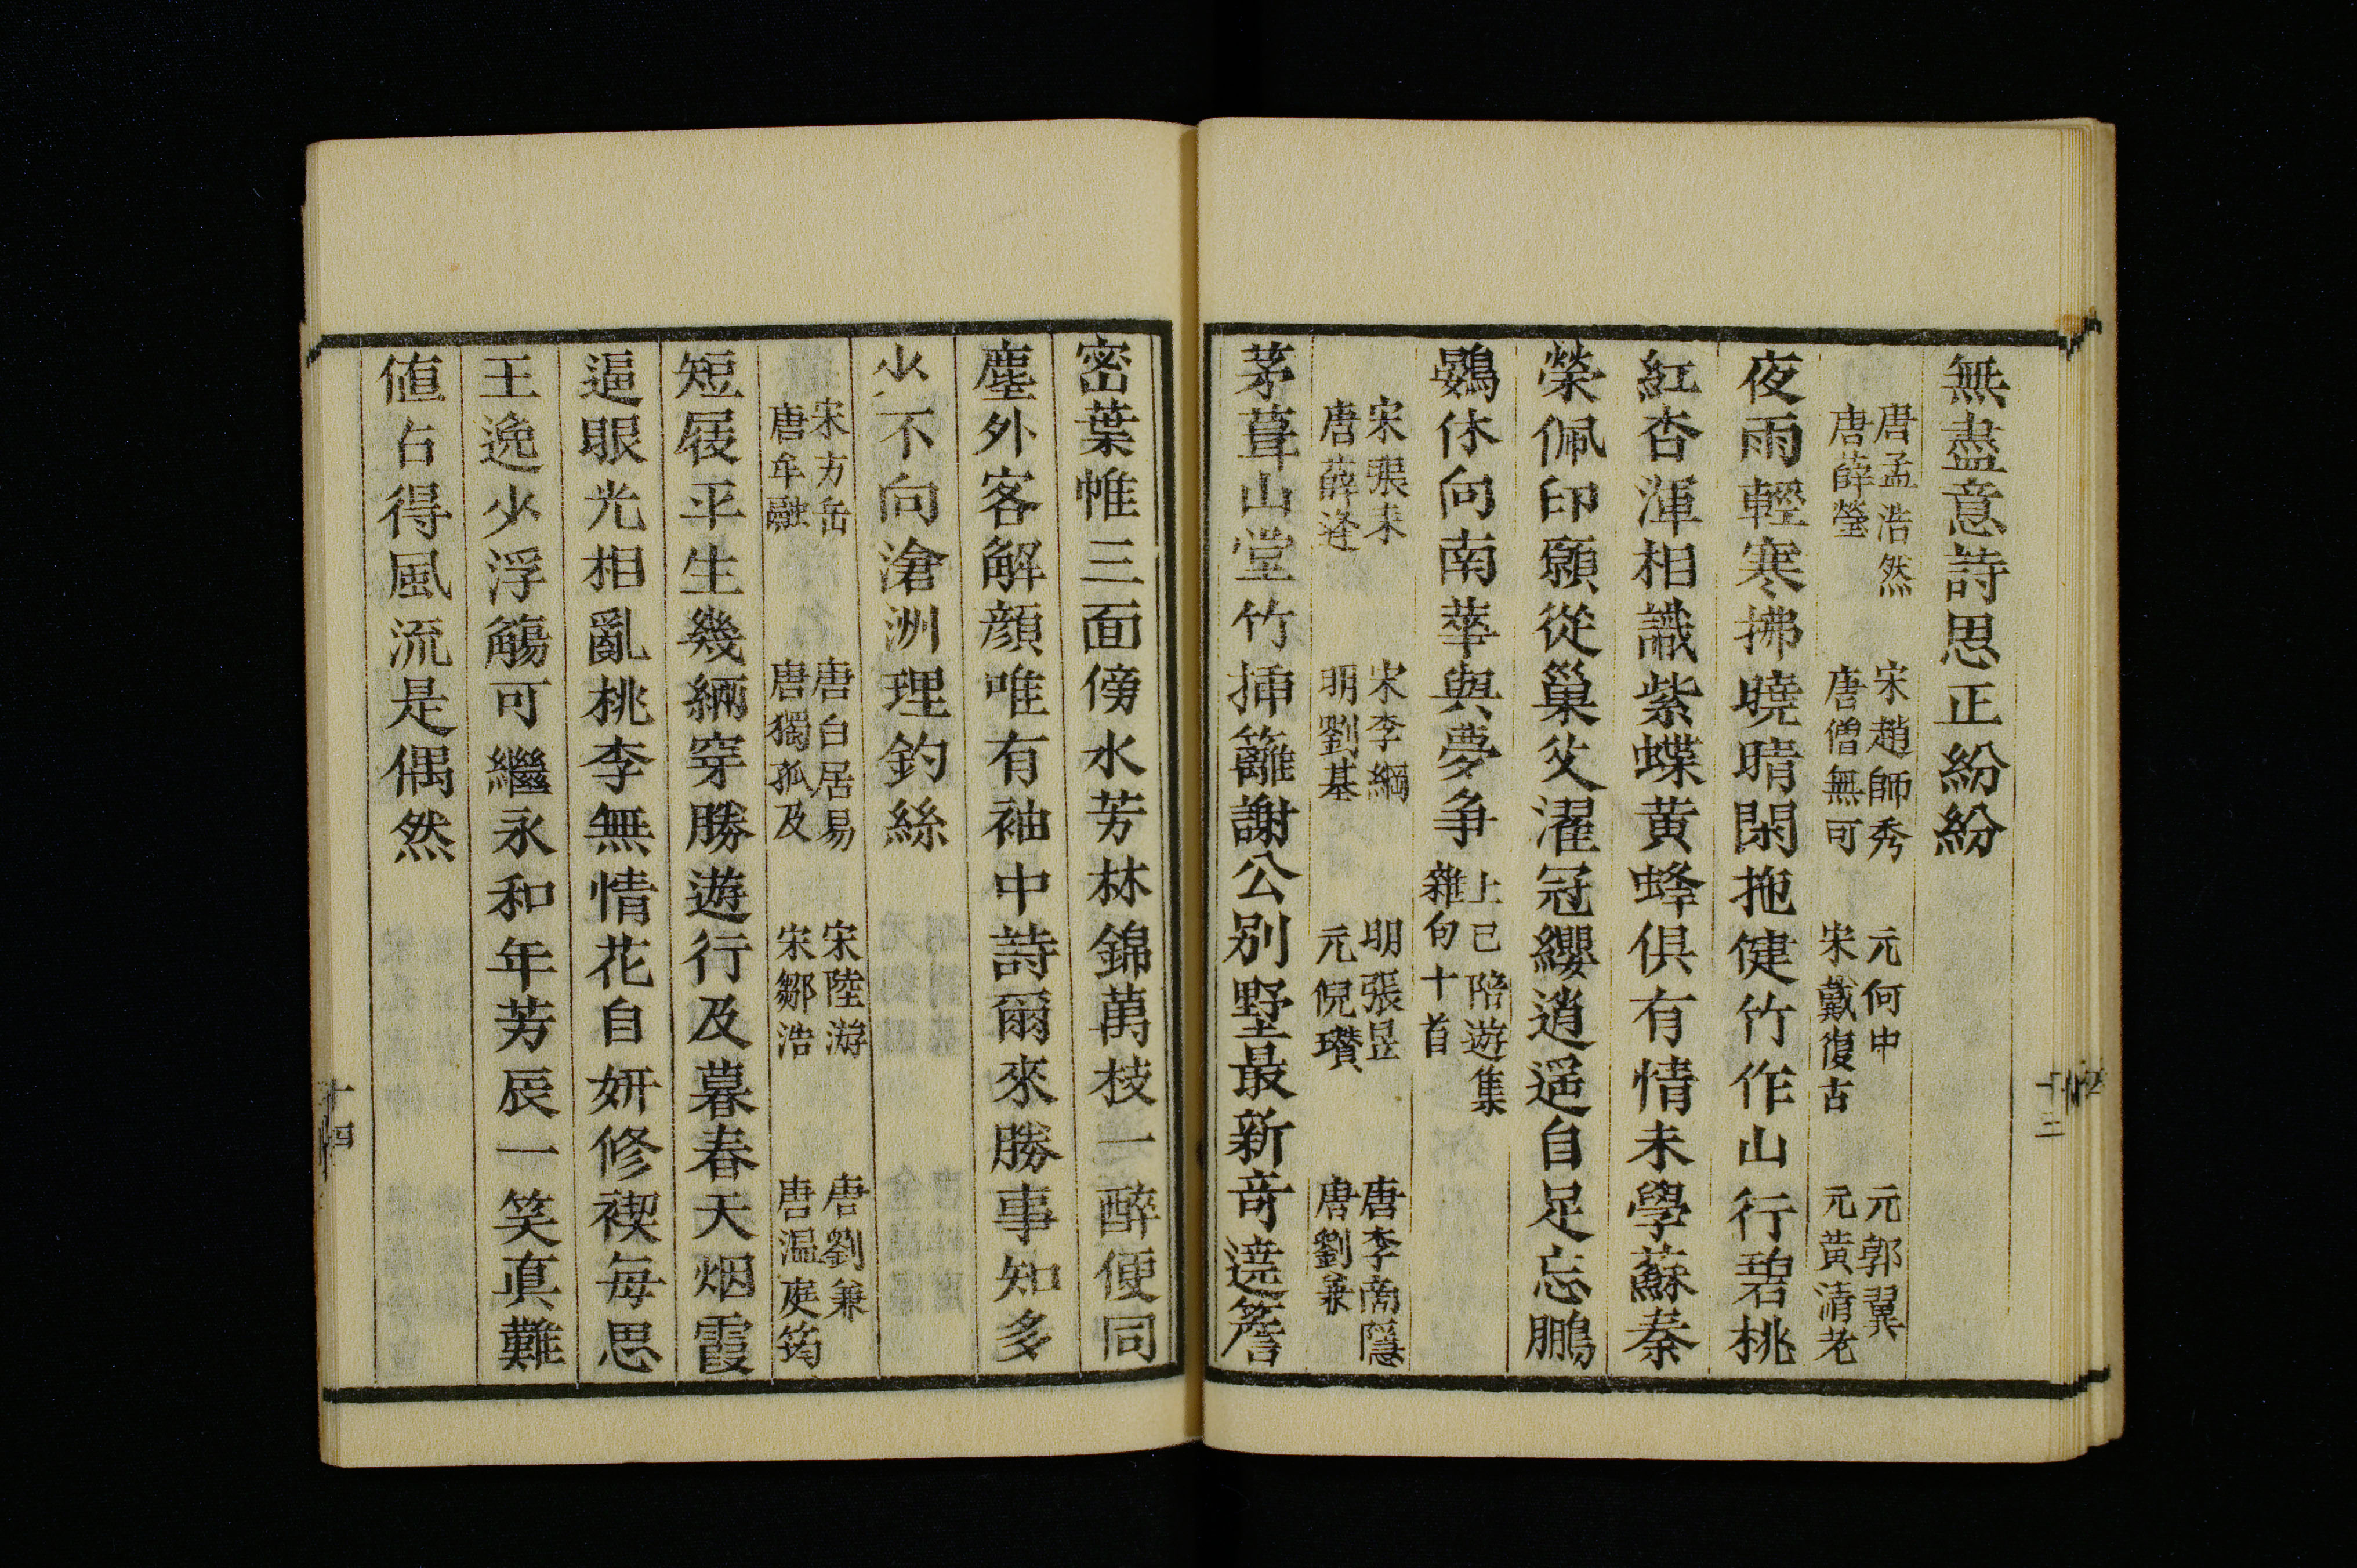 無盡意詩思正紛紛
唐孟浩然　宋趙師秀　元何中　元郭翼
唐薛瑩　唐僧無可　宋戴復古　元黄清老
夜雨輕寒拂曉晴閑拖健竹作山行碧桃
紅杏渾相識紫蝶黄蜂俱有情未學蘇秦
榮佩印願從巢父濯冠纓逍遥自足忘鵬
鷃休向南華與夢争
上巳陪遊集
雜句十首
宋張耒　宋李綱　明張昱　唐李商隱
唐薛逢　明劉基　元倪瓚　唐劉兼
茅葺山堂竹挿籬謝公别墅最新竒遶簷
密葉帷三面傍水芳林錦萬枝一醉便同
塵外客解顔唯有袖中詩爾來勝事知多
少不向滄洲理釣絲
宋方岳　唐白居易　宋陸游　唐劉兼
唐牟融　唐獨孤及　宋鄒浩　唐温庭筠
短屐平生幾緉穿勝遊行及暮春天烟霞
逼眼光相亂桃李無情花自妍修禊每思
王逸少浮觴可繼永和年芳辰一笑真難
値占得風流是偶然
十三
十四